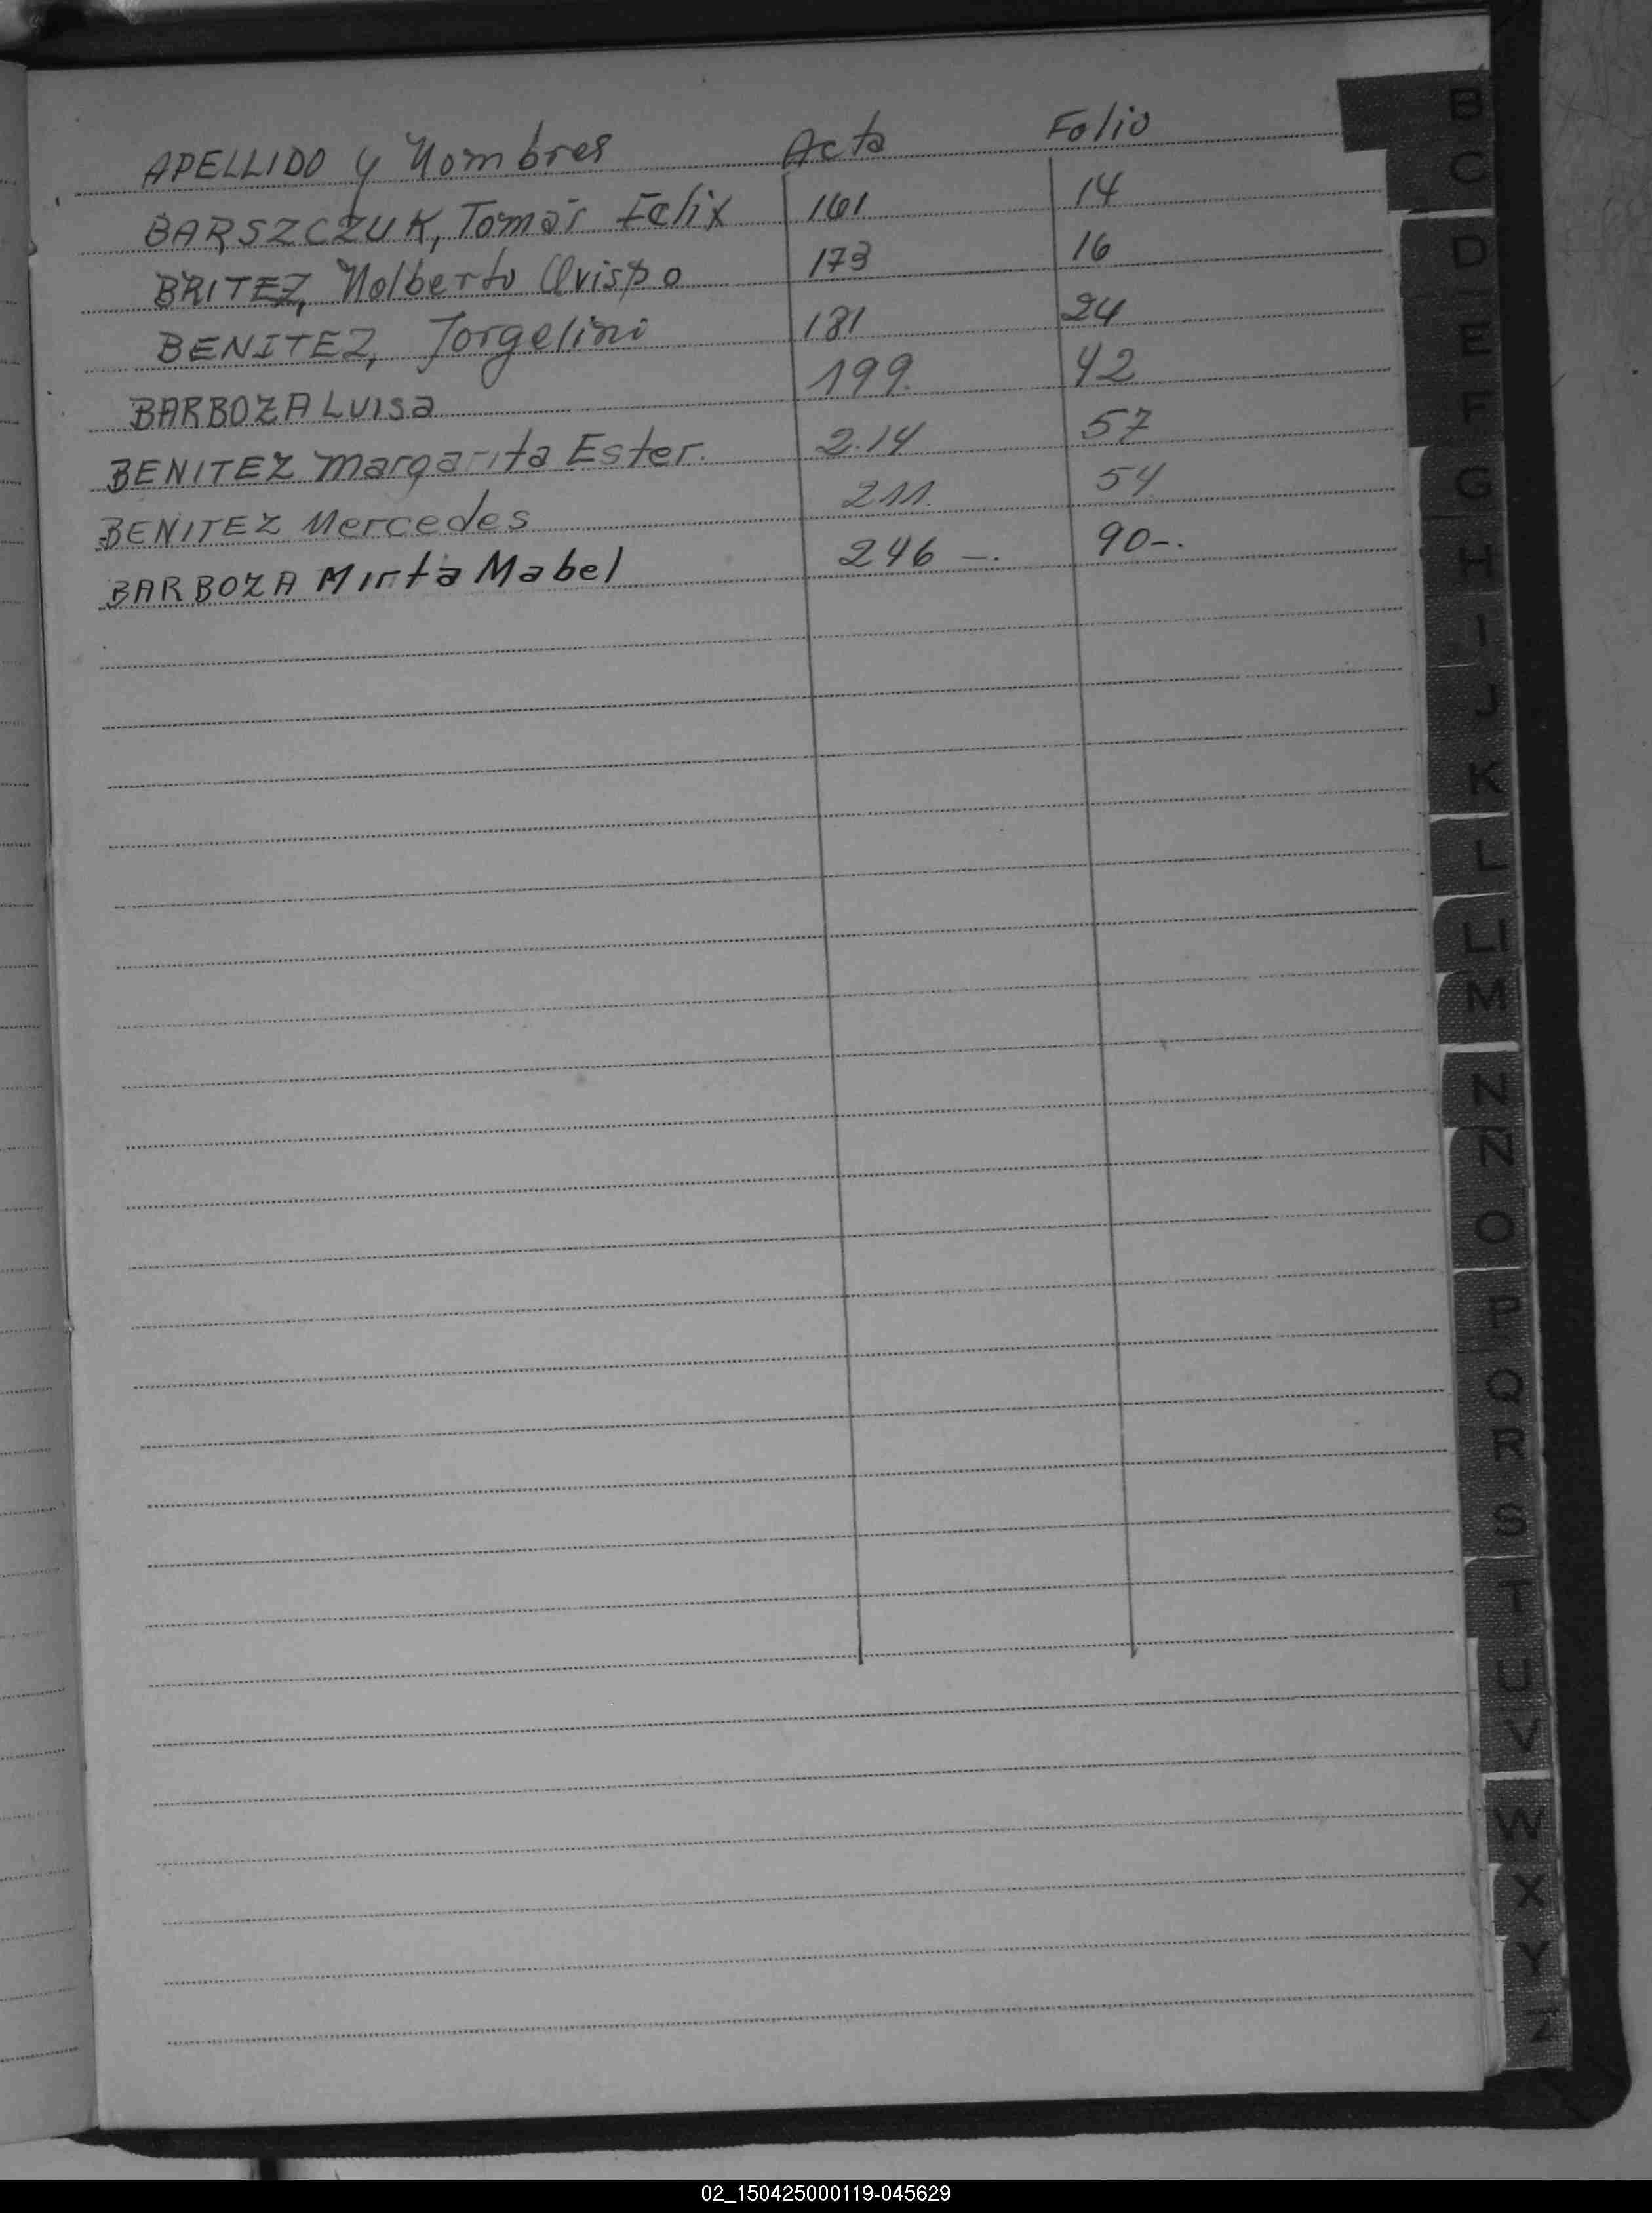 APELLIDO y Nombres Acta Folio
BARSZCZUK, Tomás Felix 161 14
BRITEZ, Nolberto Quispo 173 16
BENITEZ, Jorgelina 181 24
BARBOZA LUISa 199. 42
BENITEZ Margarita Ester. 2.14 57
BENITEZ Mercedes 211. 54
BARBOZA Mirta Mabel 246 —. 90-.
B
C
D
E
F
G
H
I
J
K
L
LI
M
N
Ñ
O
P
Q
R
S
T
U
V
W
X
Y
Z
02_150425000119-045629